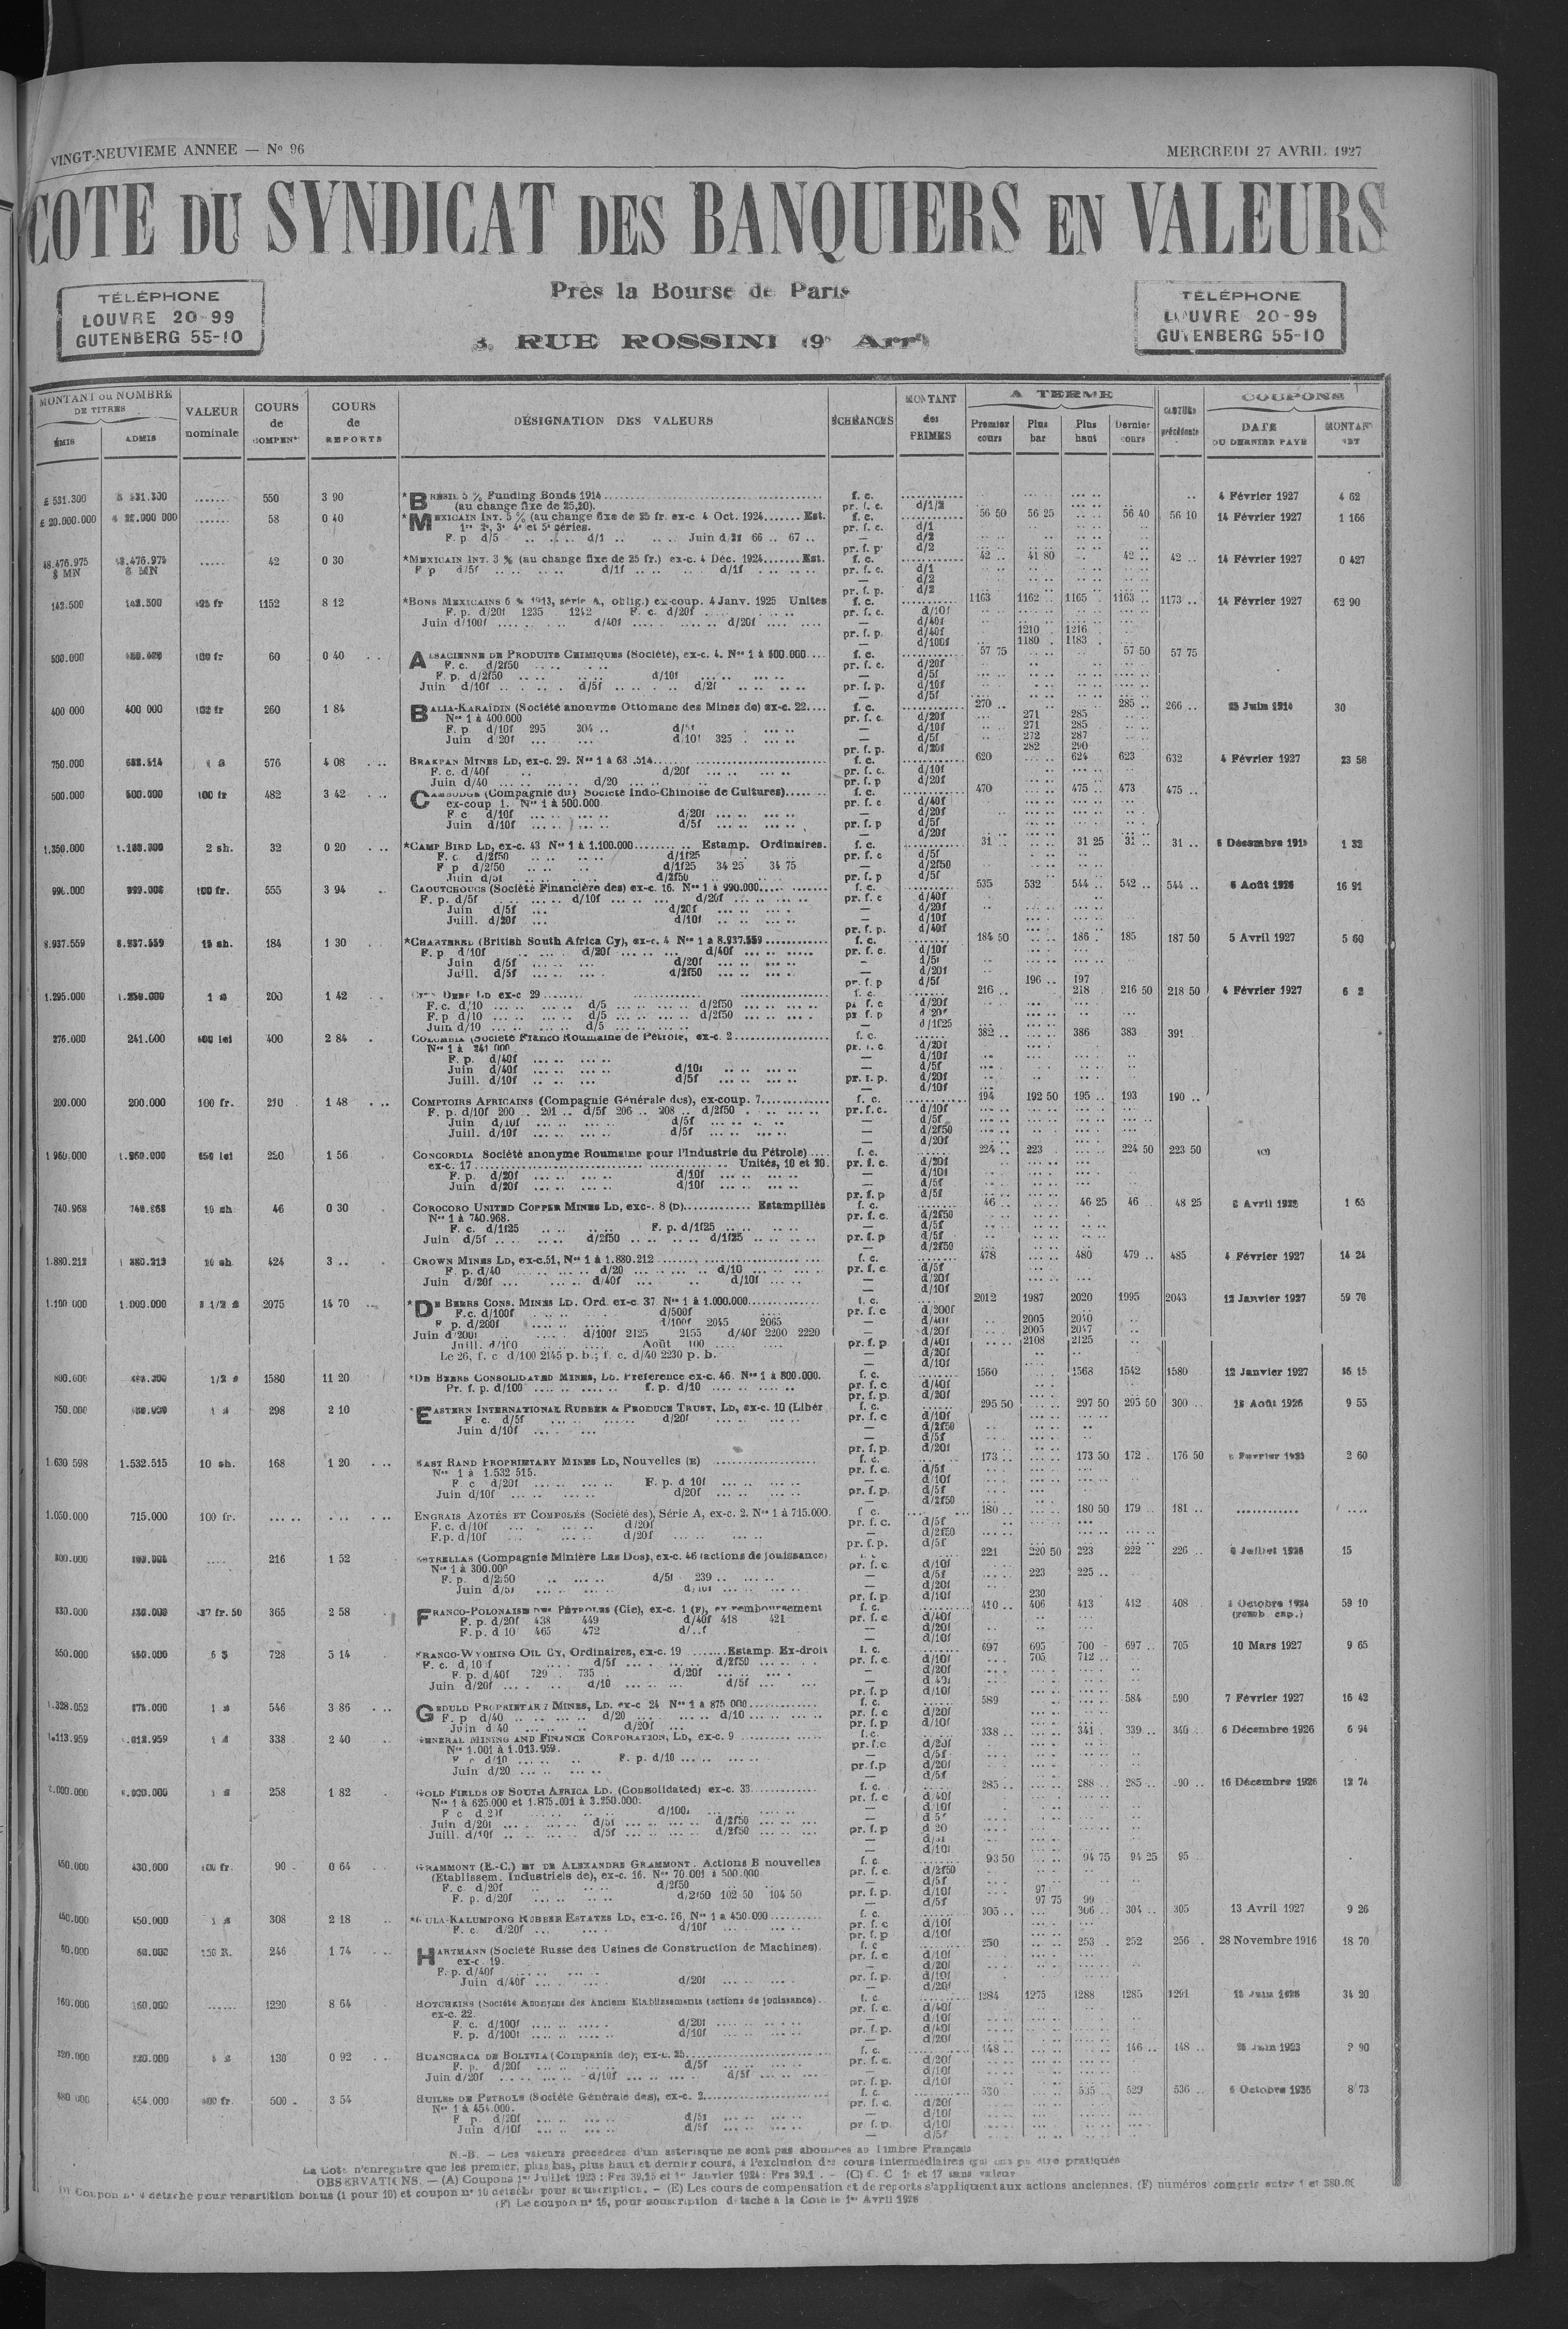 VINGT-NEUVIEME ANNEE — No 96
MERCREDI 27 AVRIL 1927
COTE DU SYNDICAT DES BANQUIERS EN VALEURS
TÉLÉPHONE
LOUVRE 20-99
GUTENBERG 55-10
Près la Bourse de Paris
RUE ROSSINI (9e Arrt)
TÉLÉPHONE
LOUVRE 20-99
GUTENBERG 55-10
MONTANT ou NOMBRE DE TITRES
ÉMIS
ADMIS
VALEUR nominale
COURS de COMPENn
COURS de REPORTS
DÉSIGNATION DES VALEURS
ÉCHÉANCES
MONTANT des PRIMES
A TERME
Premier cours
Plus bas
Plus haut
Dernier cours
précédente
COUPONS
DATE DU DERNIER PAYÉ
MONTANT NET
£ 531.300 550 3 90 *BRÉSIL 5 % Funding Bonds 1914 f. c. 4 Février 1927 4 62
(au change fixe de 25,20). pr. f. c. d/1/2
£ 20.000.000 58 0 40 *MEXICAIN INT. 5 % (au change fixe de 25 fr. ex-c. 4 Oct. 1924 Est. f. c. 56 50 56 25 56 40 56 10 14 Février 1927 1 166
1re 2e, 3e 4e et 5e séries. pr. f. c. d/1
F. p. d/5 d/1 Juin d/21 66 67 — d/2
pr. f. p. d/2
48.476.975 $ MN 42 0 30 *MEXICAIN INT. 3 % (au change fixe de 25 fr.) ex-c. 4 Déc. 1924 Est. f. c. 42 41 80 42 42 14 Février 1927 0 427
F p d/5f d/1f d/1f pr. f. c. d/1
— d/2
pr. f. p. d/2
142.500 142.500 1152 8 12 *BONS MEXICAINS 6 % 1913, série A, oblig.) ex-coup. 4 Janv. 1925 Unités f. c. 1163 1162 1165 1163 1173 14 Février 1927 62 90
F. p. d/20f 1235 1242 F. c. d/20f pr. f. c. d/10f
Juin d/100f d/40f d/20f — d/40f
pr. f. p. d/40f 1210 1216
d/100f 1180 1183
500.000 100 fr 60 0 40 ALSACIENNE DE PRODUITS CHIMIQUES (Société), ex-c. 4. Nos 1 à 500.000 f. c. 57 75 57 50 57 75
F. c. d/2f50 pr. f. c. d/20f
F. p. d/2f50 d/10f — d/5f
Juin d/10f d/5f d/2f pr. f. p. d/10f
— d/5f
400 000 400 000 260 1 84 BALIA-KARAÏDIN (Société anonyme Ottomane des Mines de) ex-c. 22 f. c. 270 285 266 25 Juin 1914 30
Nos 1 à 400.000 pr. f. c. d/20f 271 285
F. p. d/10f 295 304 — d/10f 271 285
Juin d/20f d/10f 325 — d/5f 272 287
pr. f. p. d/20f 282 290
750.000 576 4 08 BRAKPAN MINES LD, ex-c. 29. f. c. 620 624 623 632 4 Février 1927 23 58
F. c. d/40f d/20f pr. f. c. d/10f
Juin d/40 d/20 pr. f. p d/20f
500.000 500.000 100 fr 482 3 42 CAMBODGE (Compagnie du) Société Indo-Chinoise de Cultures) f. c. 470 475 473 475
ex-coup 1. Nos 1 à 500.000 pr. f. c d/40f
F c d/10f d/20f — d/20f
Juin d/10f d/5f pr. f. p d/5f
— d/20f
1.350.000 2 sh. 32 0 20 *CAMP BIRD LD, ex-c. 43 Nos 1 à 1.100.000 Estamp. Ordinaires. f. c. 31 31 25 31 31 1 32
F. c. d/2f50 d/1f25 pr. f. c d/5f
F p d/2f50 d/1f25 34 25 34 75 — d/2f50
Juin d/5f d/2f50 pr. f. p d/5f
990.000 100 fr. 555 3 94 CAOUTCHOUCS (Société Financière des) ex-c. 16. Nos 1 à 990.000 f. c. 535 532 544 542 544 6 Août 1926 16 91
F. p. d/5f d/10f d/20f pr. f. c d/40f
Juin d/5f d/20f — d/20f
Juill. d/20f d/10f — d/10f
pr. f. p. d/40f
8.937.559 8.937.559 15 sh. 184 1 30 *CHARTERED (British South Africa Cy), ex-c. 4 Nos 1 à 8.937.559 f. c. 184 50 186 185 187 50 5 Avril 1927 5 60
F. p d/10f d/20f d/40f pr. f. c. d/10f
Juin d/5f d/20f — d/5f
Juill. d/5f d/2f50 — d/20f
pr. f. p d/5f 196 197
1.295.000 200 1 42 ex-c 29 f. c. 216 218 216 50 218 50 4 Février 1927 6 2
F. c. d/10 d/5 d/2f50 pr. f. c d/20f
F. p d/10 d/5 d/2f50 pr. f. p d 20f
Juin d/10 d/5 — d/1f25
276.000 241.000 400 2 84 COLOMBIA (Société Franco Roumaine de Pétrole, ex-c. 2 f. c. 382 386 383 391
Nos 1 à 241 000 pr. f. c d/20f
F. p. d/40f — d/10f
Juin d/40f d/10f — d/5f
Juill. d/10f d/5f pr. f. p. d/20f
— d/10f
200.000 200.000 100 fr. 210 1 48 COMPTOIRS AFRICAINS (Compagnie Générale des), ex-coup. 7 f. c. 194 192 50 195 193 190
F. p. d/10f 200 201 d/5f 206 208 d/2f50 pr. f. c. d/10f
Juin d/10f d/5f — d/5f
Juill. d/10f d/5f — d/2f50
— d/20f
1 960.000 220 1 56 CONCORDIA Société anonyme Roumaine pour l'Industrie du Pétrole) f. c. 224 223 224 50 223 50 (C)
ex-c. 17 Unités, 10 et 20. pr. f. c. d/20f
F. p. d/20f d/10f — d/10f
Juin d/20f d/10f — d/5f
pr. f. p d/5f
740.968 10 sh 46 0 30 COROCORO UNITED COPPER MINES LD, exc-. 8 (D) Estampillés f. c. 46 46 25 46 48 25 1 65
Nos 1 à 740.968. pr. f. c. d/2f50
F. c. d/1f25 F. p. d/1f25 — d/5f
Juin d/5f d/2f50 d/1f25 pr. f. p d/5f
— d/2f50
1.880.212 10 sh 424 3 CROWN MINES LD, ex-c.51, Nos 1 à 1.880.212 f. c. 478 480 479 485 4 Février 1927 14 24
F. p. d/40 d/20 d/10 pr. f. c d/5f
Juin d/20f d/40f d/10f — d/20f
— d/10f
1.100 000 1.000.000 2075 14 70 *DE BEERS CONS. MINES LD. Ord. ex-c. 37 Nos 1 à 1.000.000 f. c. 2012 1987 2020 1995 2043 12 Janvier 1927 59 76
F.c. d/100f d/500f pr. f. c d/200f
F. p. d/200f d/100f 2045 2065 — d/40f 2005 2040
Juin d/200f d/100f 2125 2155 d/40f 2200 2220 — d/20f 2005 2047
Juill. d/100 Août 100 pr. f. p. d/40f 2108 2125
Le 26, f. c d/100 2145 p. b.; f. c. d/40 2230 p. b. — d/20f
— d/10f
800.000 1580 11 20 *DE BEERS CONSOLIDATED MINES, LD. Préférence ex-c. 46. Nos 1 à 800.000. f. c. 1560 1568 1542 1580 12 Janvier 1927
Pr. f. p. d/100 f. p. d/10 pr. f. c. d/40f
pr. f. p. d/20f
750.000 298 2 10 EASTERN INTERNATIONAL RUBBER & PRODUCE TRUST, LD, ex-c. 10 (Libér f. c. 295 50 297 50 295 50 300 18 Août 1926 9 55
F c. d/5f d/20f pr. f. c d/10f
Juin d/10f — d/2f50
— d/5f
pr. f. p. d/20f
1.630 598 1.532.515 10 sh. 168 1 20 EAST RAND PROPRIETARY MINES LD, Nouvelles (E) f. c. 173 173 50 172 176 50 2 60
Nos 1 à 1.532 515. pr. f. c. d/5f
F. c d/20f F. p. d 10f — d/10f
Juin d/10f d/20f pr. f. p. d/5f
— d/2f50
1.050.000 715.000 100 fr. ENGRAIS AZOTÉS ET COMPOSÉS (Société des), Série A, ex-c. 2. Nos 1 à 715.000. f c. 180 180 50 179 181
F. c. d/10f d/20f pr. f. c. d/5f
F.p. d/10f d/20f — d/2f50
pr. f. p. d/5f
300.000 216 1 52 ESTRELLAS (Compagnie Minière Las Dos), ex-c. 46 (actions de jouissance) 221 220 50 223 222 226 6 Juillet 1926 15
Nos 1 à 300.000 pr. f. c d/10f
F. p. d/2f50 d/5f 239 — d/5f 223 225
Juin d/5f d/10f — d/20f
pr. f. p d/10f 230
365 2 58 FRANCO-POLONAISE DES PÉTROLES (Cie), ex-c. 1 (F), ex-remboursement f. c. 410 406 413 412 408 Octobre 1924 59 10
F. p. d/20f 438 449 d/40f 418 421 pr. f. c d/40f (remb cap.)
F. p. d 10 465 472 — d/20f
— d/10f
550.000 550.000 728 5 14 FRANCO-WYOMING OIL CY, Ordinaires, ex-c. 19 Estamp. Ex-droit f. c. 697 695 700 697 705 10 Mars 1927 9 65
F. c. d/10f d/5f d/2f50 pr. f. c. d/10f 705 712
F. p. d/40f 729 735 d/20f — d/20f
Juin d/20f d/10 d/5f — d 40f
pr. f. p d/10f
1.328.052 546 3 86 GEDULD PROPRIETARY MINES, LD. ex-c 24 Nos 1 à 875 000 f. c. 589 584 590 7 Février 1927 16 42
F. p d/40 d/20 d/10 pr. f. c d/20f
Juin d 40 d/20f pr. f. p d/10f
1.113.959 338 2 40 GENERAL MINING AND FINANCE CORPORATION, LD, ex-c. 9 f. c. 338 341 339 340 6 Décembre 1926 6 94
Nos 1.001 à 1.013.959. pr. f. c d/20f
F c d/10 F. p. d/10 — d/5f
Juin d/20 pr. f. p d/20f
— d/5f
258 1 82 GOLD FIELDS OF SOUTH AFRICA LD. (Consolidated) ex-c. 33 f. c. 285 288 285 16 Décembre 1926 12 74
Nos 1 à 625.000 et 1.875.001 à 3.250.000. pr. f. c d 40f
F c d 20f d/100f — d/10f
Juin d/20f d/5f d/2f50 — d 5f
Juill. d/10f d/5f d/2f50 pr. f. p d 20
— d/5f
— d/10f
430.000 100 fr. 90 0 64 GRAMMONT (E.-C.) ET DE ALEXANDRE GRAMMONT. Actions B nouvelles f. c. 93 50 94 75 94 25 95
(Etablissem. Industriels de), ex-c. 16. Nos 70 001 à 500.000 pr. f. c. d/2f50
F. c d/20f d/2f50 — d/5f
F. p. d/20f d/2f50 102 50 104 50 pr. f. p. d/10f 97
— d/5f 97 75 99
450.000 308 2 18 GULA-KALUMPONG RUBBER ESTATES LD, ex-c. 26, Nos 1 à 450.000 f. c. 305 306 304 305 13 Avril 1927 9 26
F. c. d/20f d/10f pr. f. c d/10f
pr. f. p d/10f
60.000 60.000 150 R. 246 1 74 HARTMANN (Société Russe des Usines de Construction de Machines). f. c 250 253 252 256 28 Novembre 1916 18 70
ex-c. 19. pr. f. c d/10f
F. p. d/40f — d/20f
Juin d/40f d/20f pr. f. p. d/10f
— d/20f
160.000 160.000 1220 8 64 HOTCHKISS (Société Anonyme des Anciens Etablissements (actions de jouissance). f. c. 1284 1275 1288 1285 1291 34 20
ex-c. 22. pr. f. c. d/40f
F. c. d/100f d/20f — d/10f
F. p. d/100f d/10f pr. f. p. d/40f
— d/20f
320.000 130 0 92 HUANCHACA DE BOLIVIA (Compania de); ex-c. 25 f. c. 148 146 148 25 Juin 1923 2 90
F. p. d/20f d/5f pr. f. c. d/20f
Juin d/20f d/10f d/5f — d/10f
pr. f. p. d/10f
480 000 454.000 500 3 54 HUILES DE PÉTROLE (Société Générale des), ex-c. 2 f. c. 530 535 529 536 6 Octobre 1926 8 73
Nos 1 à 454.000. pr. f. c. d/20f
F p. d/20f d/5f — d/10f
Juin d/10f d/5f pr f. p. d/10f
— d/5f
N.-B. — Les valeurs précédées d'un astérisque ne sont pas abonnées au Timbre Français
La Cote n'enregistre que les premier, plus bas, plus haut et dernier cours, à l'exclusion des cours intermédiaires qui ont pu être pratiqués
OBSERVATIONS. — (A) Coupons 1er Juillet 1923: Frs 39,15 et 1er Janvier 1924: Frs 39,1 . — (C) C. C 16 et 17 sans valeur
(D) Coupon n° 9 détaché pour répartition bonus (1 pour 10) et coupon n° 10 détaché pour souscription. — (E) Les cours de compensation et de reports s'appliquent aux actions anciennes. (F) numéros compris entre 1 et 380.00
(F) Le coupon n° 15, pour souscription détaché à la Cote le 1er Avril 1926